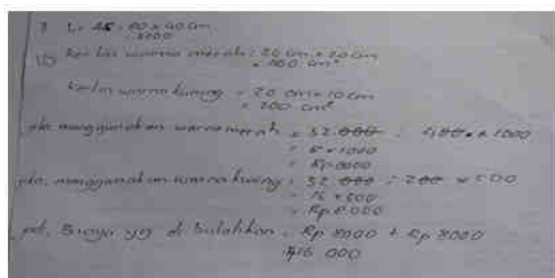 7. L = 45 = 80 x 40 cm
= 3200
(b) Kertas warna merah = 20 cm x 20 cm
= 400 cm²
kertas warna kuning = 20 cm x 10 cm
= 200 cm²
jika menggunakan warna merah = 32.000 : 400 x 1000
= 8 x 1000
= Rp 8000
jika menggunakan warna kuning = 32.000 : 200 x 500
= 16 x 500
= Rp 8.000
jadi, Biaya yg di butuhkan = Rp 8000 + Rp 8000
16 000